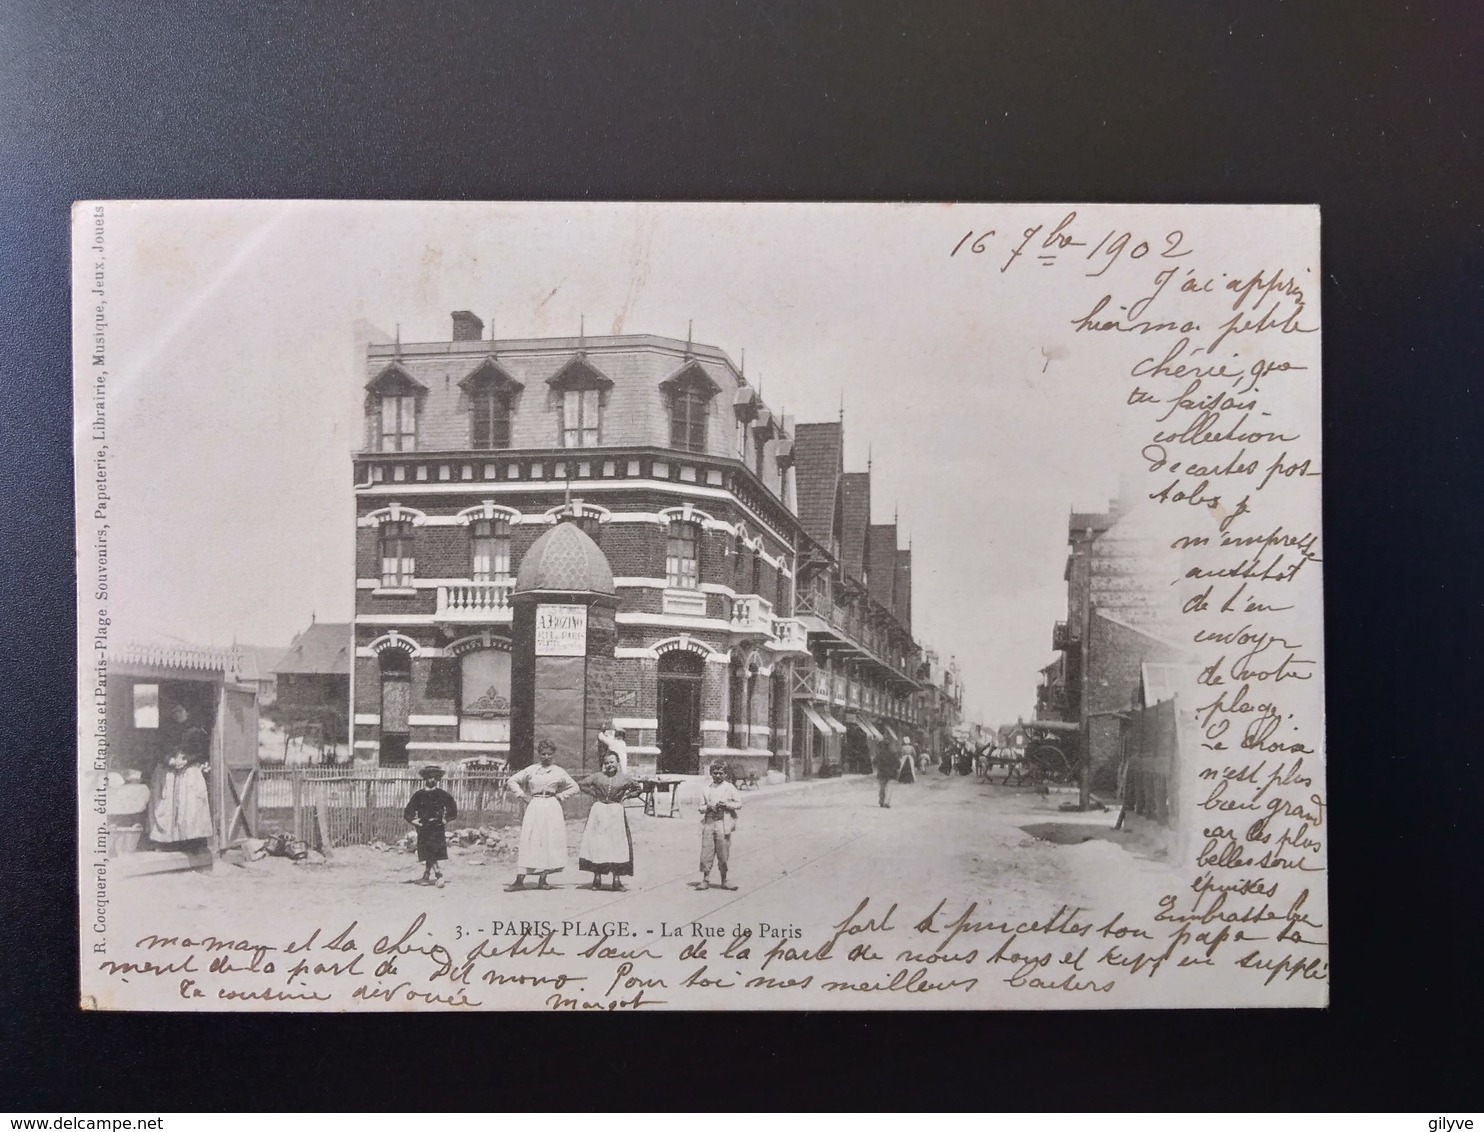 16 7bre 1902
J'ai appris
hier ma petite
chérie, que
tu faisais
collection
de cartes pos-
tales je
m'empresse
aussitôt
de t'en
envoyer
de notre
plage.
Le choix
n'est plus
bien grand
car les plus
belles sont
épuisées
Embrasse bien
fort à pincettes ton papa ta
maman et ta chère petite sœur de la part de nous tous et en supplé
ment de la part de Pour toi nos meilleurs baisers
Ta cousine dévouée Margot
3. - PARIS-PLAGE. - La Rue de Paris
R. Cocquerel, imp. édit., Etaples et Paris-Plage Souvenirs, Papeterie, Librairie, Musique, Jeux, Jouets
A. BOZINO
RUE de PARIS
gilyve
delcampe.net